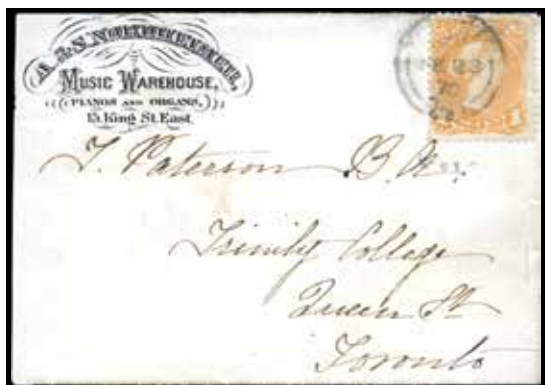 A & S NORDHEIMER,
MUSIC WAREHOUSE,
PIANOS AND ORGANS,
15 King St. East
T. Paterson B.A.
Trinity College
Queen St
Toronto
23
70
1